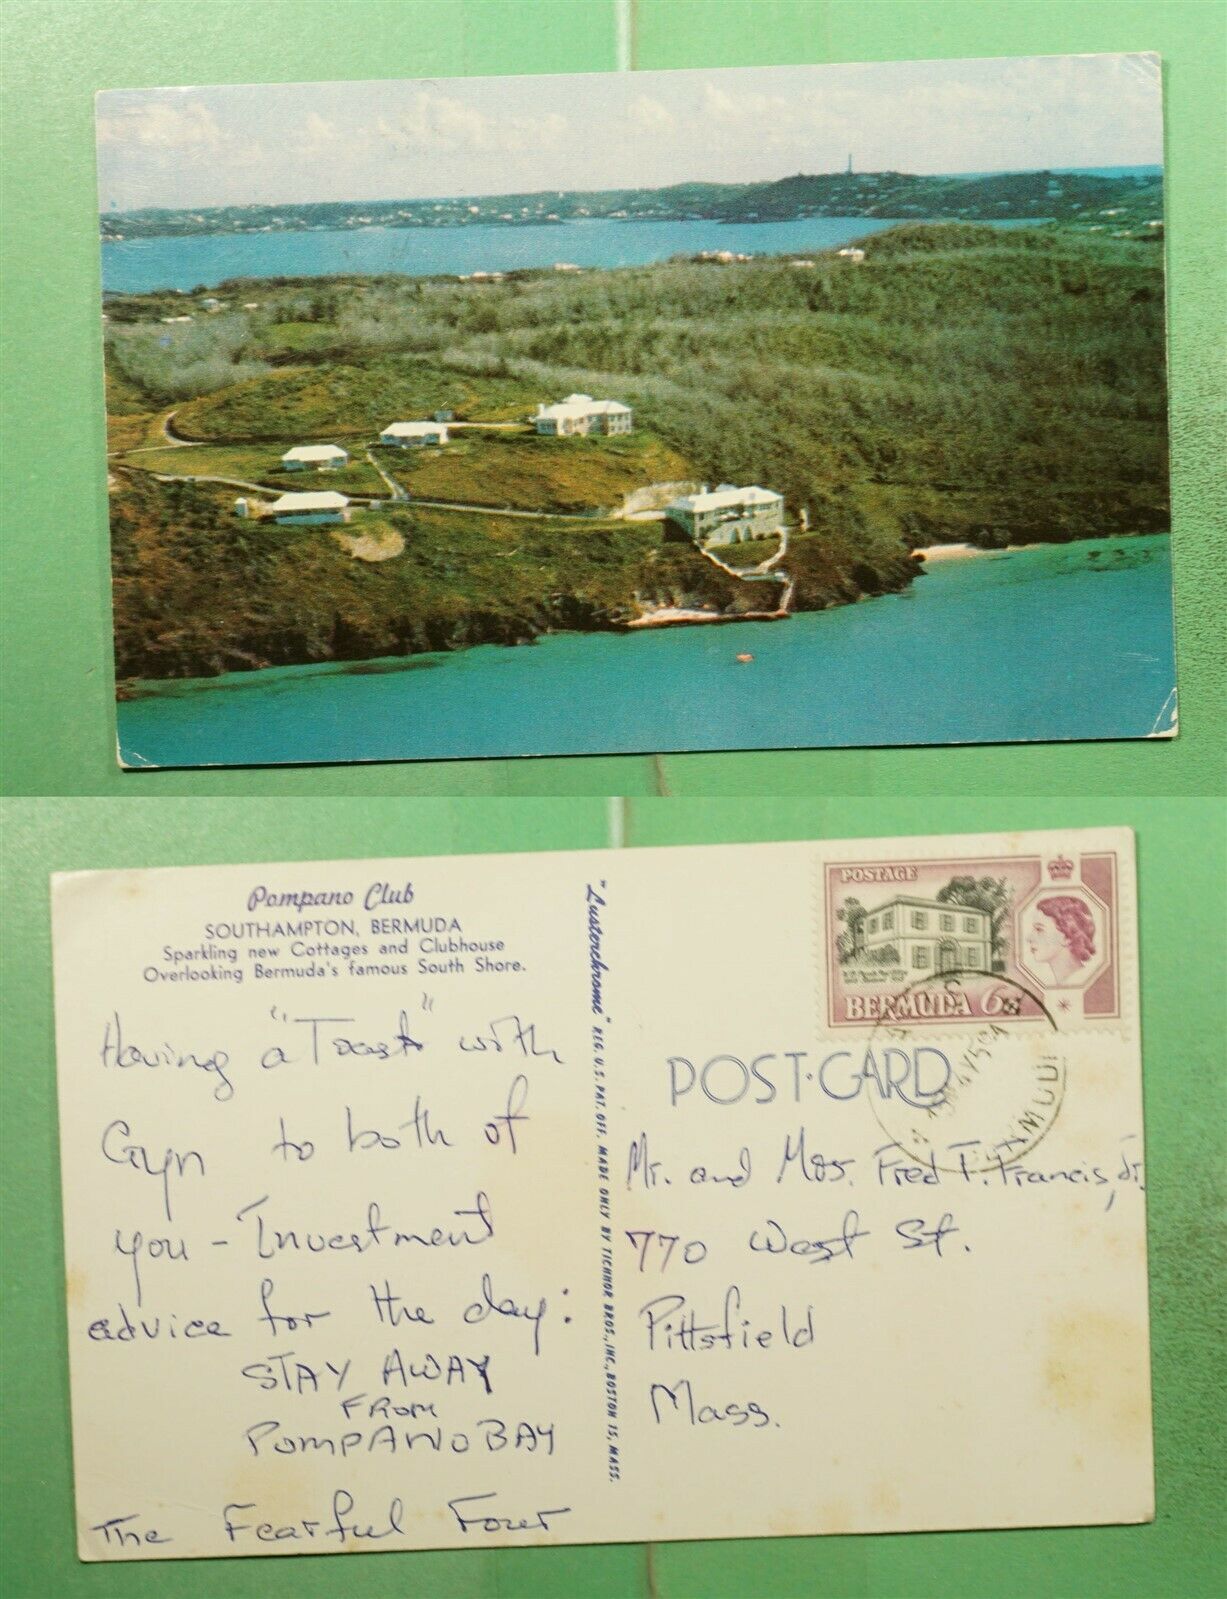 Pompano Club
SOUTHAMPTON, BERMUDA
Sparkling new Cottages and Clubhouse
Overlooking Bermuda's famous South Shore.
Having a "Toast" with
Gyn to both of
you - Investment
advice for the day:
STAY AWAY
FROM
POMPANO BAY
The Fearful Four
"Lusterchrome" REG. U.S. PAT. OFF. MADE ONLY BY TICHNOR BROS., INC., BOSTON 15, MASS.
POSTAGE
BERMUDA 6d
POST-CARD
Mr. and Mrs. Fred T. Francis, Jr.
770 West St.
Pittsfield
Mass.